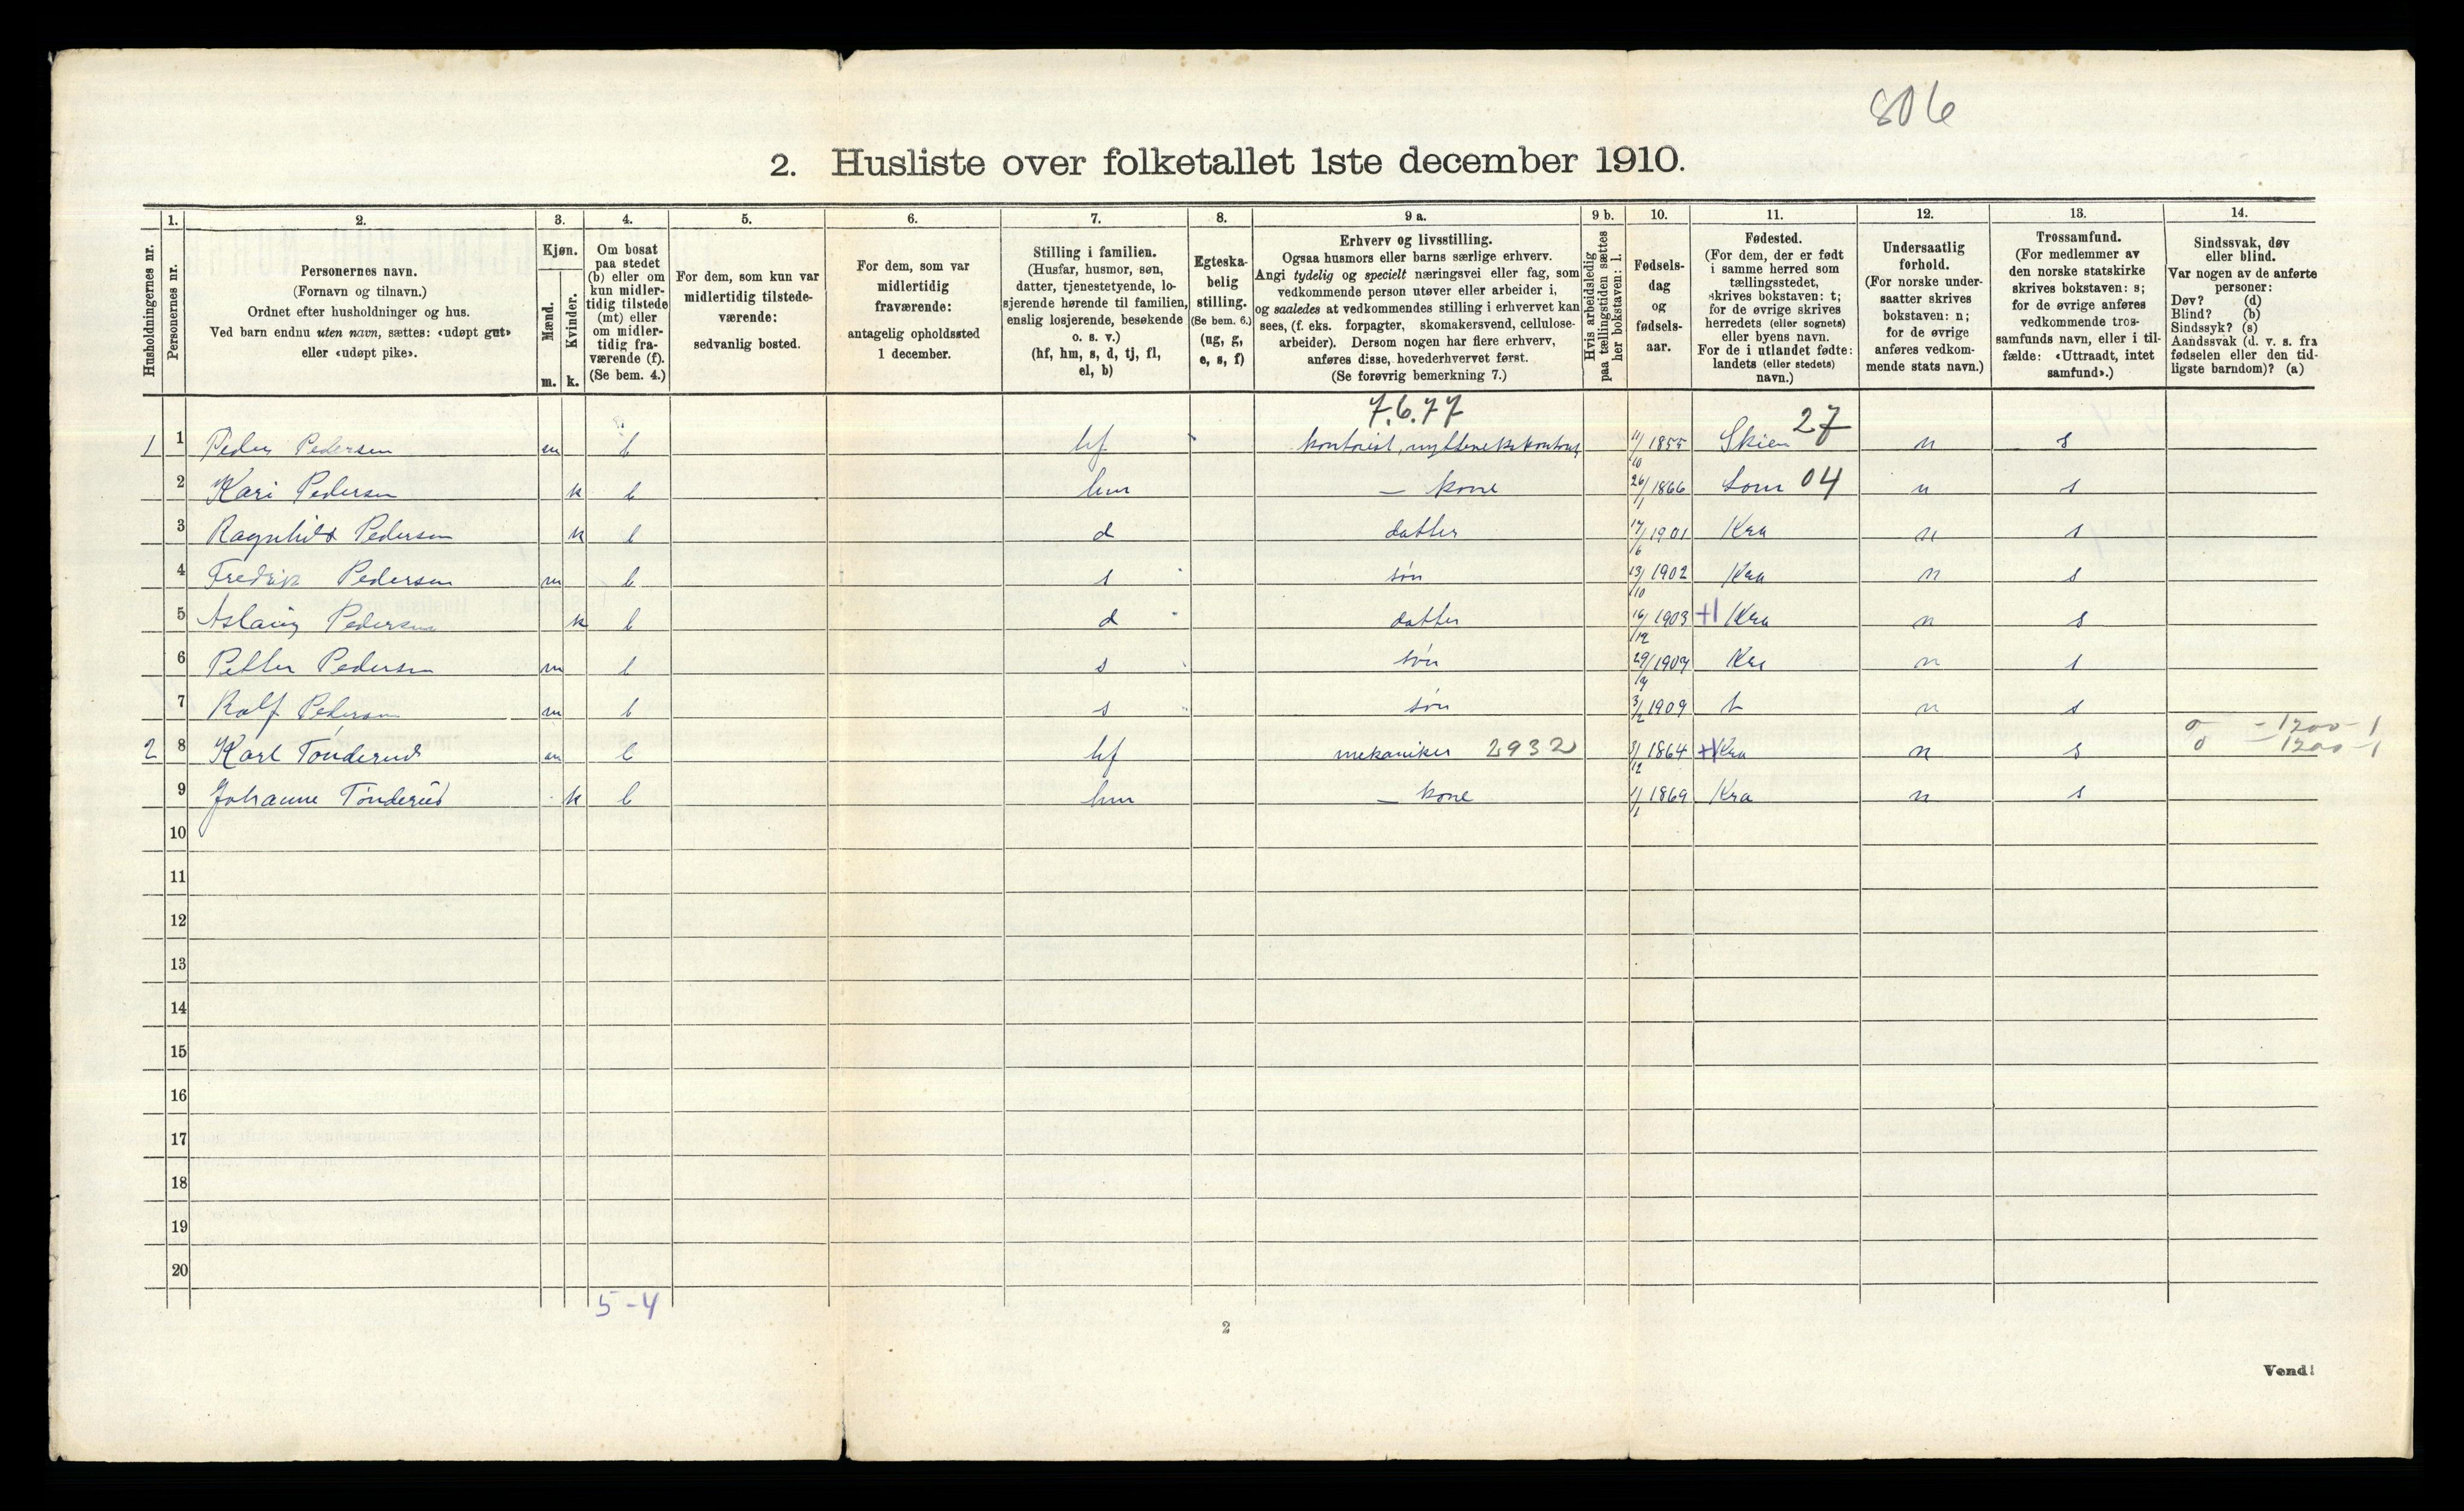 806
2. Husliste over folketallet 1ste december 1910.
1. 2. 3. 4. 5. 6. 7. 8. 9 a. 9 b. 10. 11. 12. 13. 14.
Husholdningernes nr.
Personernes nr.
Personernes navn.
(Fornavn og tilnavn.)
Ordnet efter husholdninger og hus.
Ved barn endnu uten navn, sættes: «udøpt gut»
eller «udøpt pike».
Kjøn.
Mænd.
Kvinder.
m. k.
Om bosat
paa stedet
(b) eller om
kun midler-
tidig tilstede
(mt) eller
om midler-
tidig fra-
værende (f).
(Se bem. 4.)
For dem, som kun var
midlertidig tilstede-
værende:
sedvanlig bosted.
For dem, som var
midlertidig
fraværende:
antagelig opholdssted
1 december.
Stilling i familien.
(Husfar, husmor, søn,
datter, tjenestetyende, lo-
sjerende hørende til familien,
enslig losjerende, besøkende
o. s. v.)
(hf, hm, s, d, tj, fl,
el, b)
Egteska-
belig
stilling.
(Se bem. 6.)
(ug, g,
e, s, f)
Erhverv og livsstilling.
Ogsaa husmors eller barns særlige erhverv.
Angi tydelig og specielt næringsvei eller fag, som
vedkommende person utøver eller arbeider i,
og saaledes at vedkommendes stilling i erhvervet kan
sees, (f. eks. forpagter, skomakersvend, cellulose-
arbeider). Dersom nogen har flere erhverv,
anføres disse, hovederhvervet først.
(Se forøvrig bemerkning 7.)
Hvis arbeidsledig
paa tællingstiden sættes
her bokstaven: l.
Fødsels-
dag
og
fødsels-
aar.
Fødested.
(For dem, der er født
i samme herred som
tællingsstedet,
skrives bokstaven: t;
for de øvrige skrives
herredets (eller sognets)
eller byens navn.
For de i utlandet fødte:
landets (eller stedets)
navn.)
Undersaatlig
forhold.
(For norske under-
saatter skrives
bokstaven: n;
for de øvrige
anføres vedkom-
mende stats navn.)
Trossamfund.
(For medlemmer av
den norske statskirke
skrives bokstaven: s;
for de øvrige anføres
vedkommende tros-
samfunds navn, eller i til-
fælde: «Uttraadt, intet
samfund».)
Sindssvak, døv
eller blind.
Var nogen av de anførte
personer:
Døv? (d)
Blind? (b)
Sindssyk? (s)
Aandssvak (d. v. s. fra
fødselen eller den tid-
ligste barndom)? (a)
7.6.77
1 1 Peder Pedersen m b hf kontorist, 11/10 1855 Skien 27 n s
2 Kari Pedersen k b hm — kone 26/1 1866 Lom 04 n s
3 Ragnhild Pedersen k b d datter 17/6 1901 Kra n s
4 Fredrik Pedersen m b s søn 13/10 1902 Kra n s
5 Aslaug Pedersen k b d datter 16/12 1903 +1 Kra n s
6 Petter Pedersen m b s søn Kra n s
7 Rolf Pedersen m b s søn 3/2 1909 t n s
2 8 Karl Tønderud m b hf mekaniker 2932 1864 Kra n s
0 – 1200 – 1
0 – 1200 – 1
9 Johanne Tønderud k b hm — kone 1869 Kra n s
10
11
12
13
14
15
16
17
18
19
20
5 - 4
2
Vend!